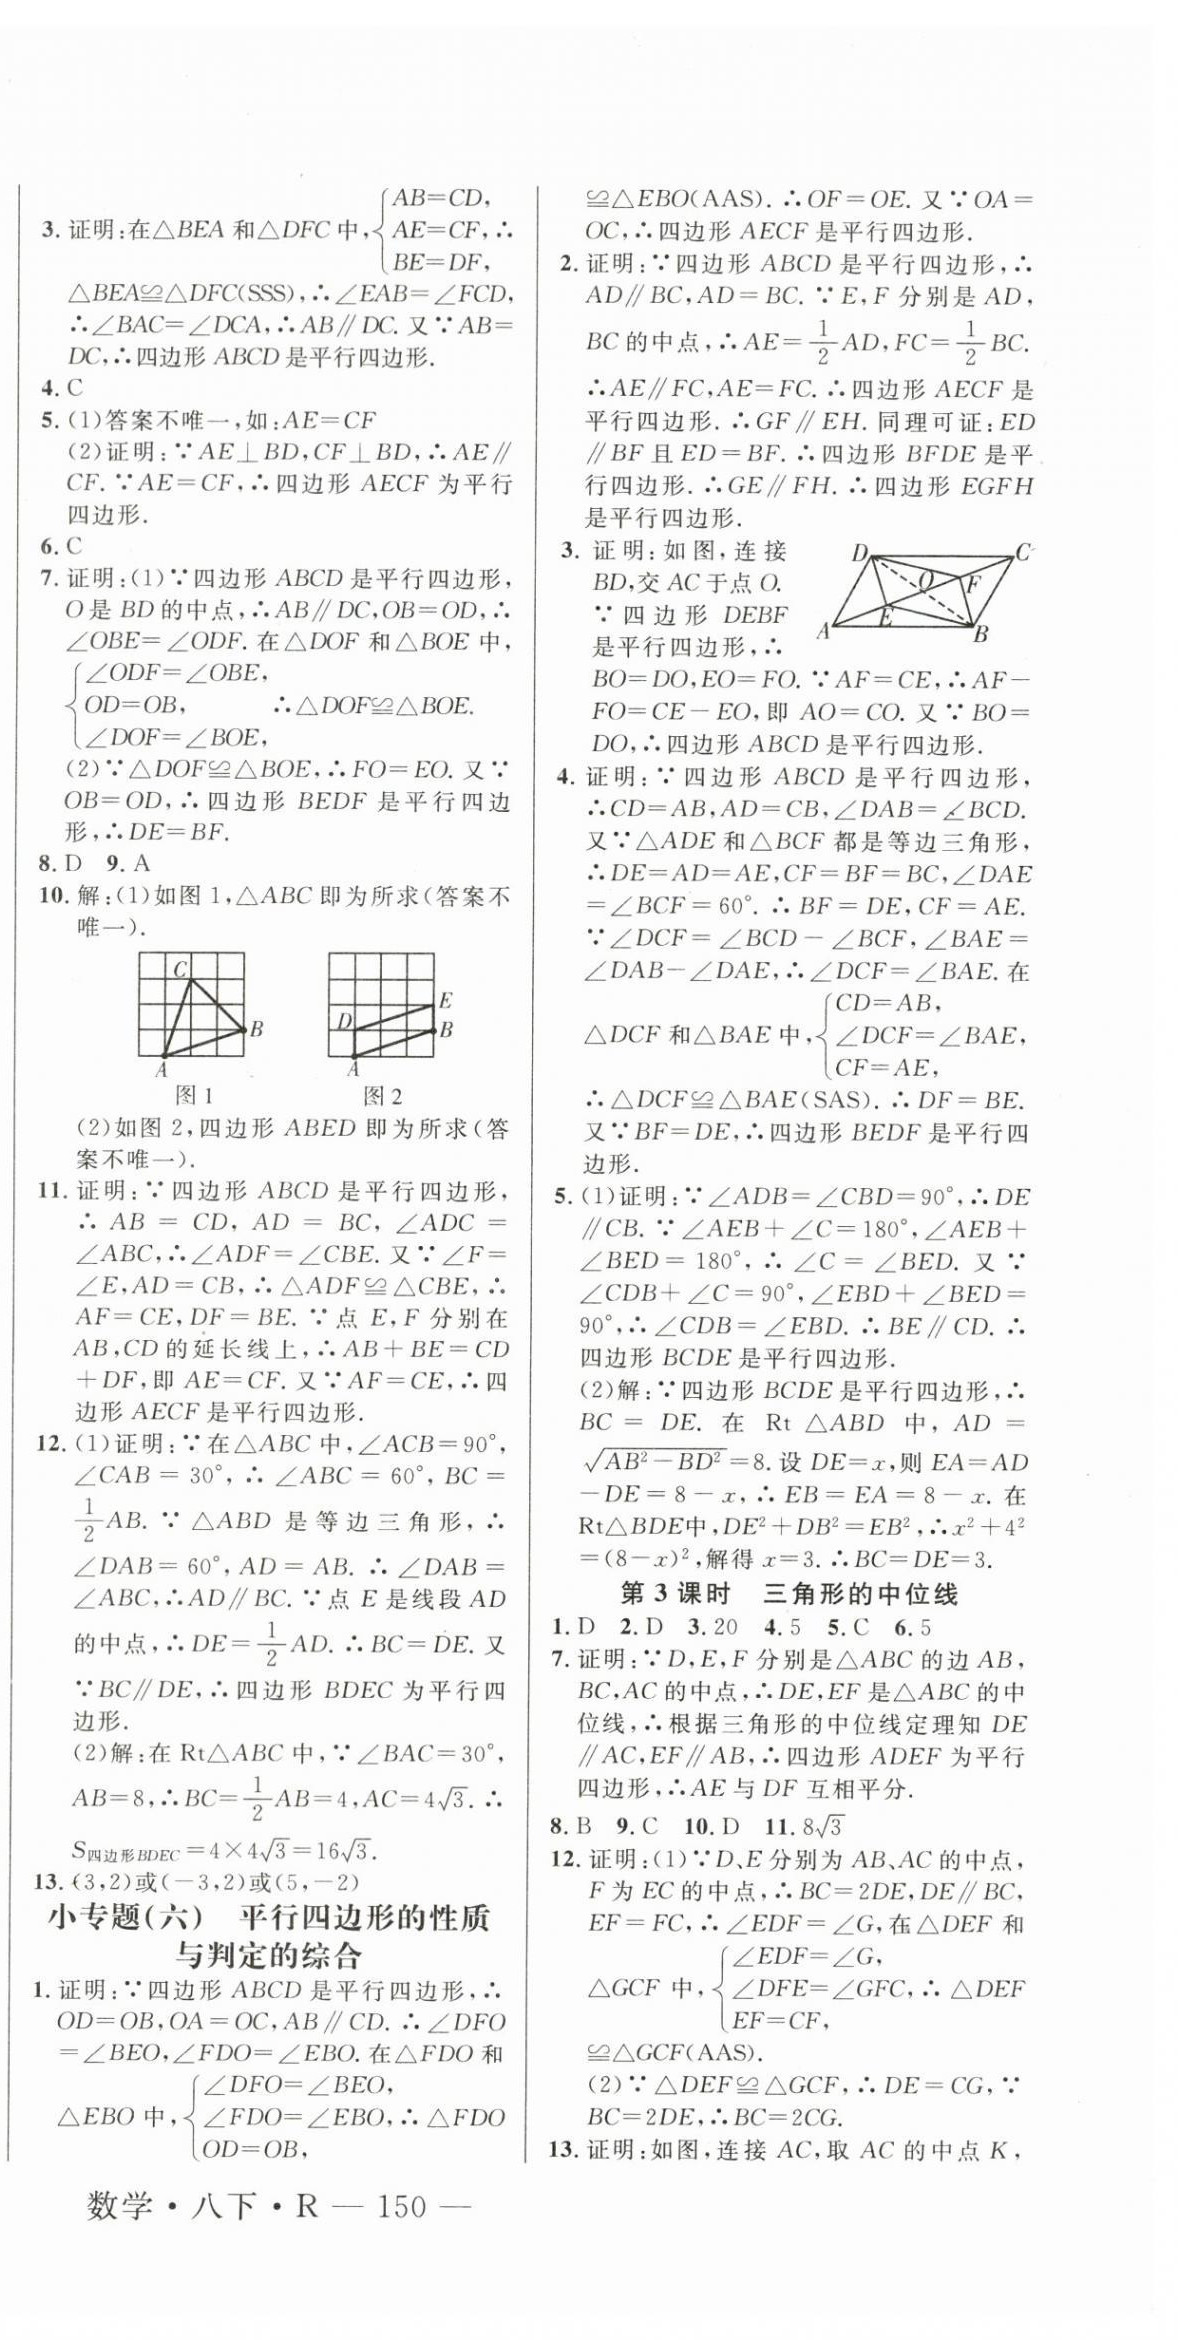 3. 证明:在△BEA 和△DFC 中,{AB=CD, AE=CF, BE=DF, ∴
△BEA≌△DFC(SSS),∴∠EAB=∠FCD,
∴∠BAC=∠DCA,∴AB∥DC. 又∵AB=
DC,∴四边形 ABCD 是平行四边形.
4. C
5. (1)答案不唯一,如:AE=CF
(2)证明:∵AE⊥BD,CF⊥BD,∴AE∥
CF. ∵AE=CF,∴四边形 AECF 为平行
四边形.
6. C
7. 证明:(1)∵四边形 ABCD 是平行四边形,
O 是 BD 的中点,∴AB∥DC,OB=OD,∴
∠OBE=∠ODF. 在△DOF 和△BOE 中,
{∠ODF=∠OBE,
OD=OB, ∴△DOF≌△BOE.
∠DOF=∠BOE,
(2)∵△DOF≌△BOE,∴FO=EO. 又∵
OB=OD,∴四边形 BEDF 是平行四边
形,∴DE=BF.
8. D 9. A
10. 解:(1)如图 1,△ABC 即为所求(答案不
唯一).
C
B
A
图 1
E
D
B
A
图 2
(2)如图 2,四边形 ABED 即为所求(答
案不唯一).
11. 证明:∵四边形 ABCD 是平行四边形,
∴ AB = CD, AD = BC, ∠ADC =
∠ABC,∴∠ADF=∠CBE. 又∵∠F=
∠E,AD=CB,∴△ADF≌△CBE,∴
AF=CE,DF=BE. ∵点 E,F 分别在
AB,CD 的延长线上,∴AB+BE=CD
+DF,即 AE=CF. 又∵AF=CE,∴四
边形 AECF 是平行四边形.
12. (1)证明:∵在△ABC 中,∠ACB=90°,
∠CAB = 30°, ∴ ∠ABC = 60°, BC =
1/2 AB. ∵ △ABD 是等边三角形, ∴
∠DAB=60°,AD=AB. ∴∠DAB=
∠ABC,∴AD∥BC. ∵点 E 是线段 AD
的中点,∴DE=1/2 AD. ∴BC=DE. 又
∵BC∥DE,∴四边形 BDEC 为平行四
边形.
(2)解:在 Rt△ABC 中,∵∠BAC=30°,
AB=8,∴BC=1/2 AB=4,AC=4√3. ∴
S四边形BDEC=4×4√3=16√3.
13. (3,2)或(-3,2)或(5,-2)
小专题(六) 平行四边形的性质
与判定的综合
1. 证明:∵四边形 ABCD 是平行四边形,∴
OD=OB,OA=OC,AB∥CD. ∴∠DFO
=∠BEO,∠FDO=∠EBO. 在△FDO 和
△EBO 中,{∠DFO=∠BEO, ∠FDO=∠EBO, OD=OB, ∴△FDO
数学·八下·R — 150 —
≌△EBO(AAS). ∴OF=OE. 又∵OA=
OC,∴四边形 AECF 是平行四边形.
2. 证明:∵四边形 ABCD 是平行四边形,∴
AD∥BC,AD=BC. ∵E,F 分别是 AD,
BC 的中点,∴AE=1/2 AD,FC=1/2 BC.
∴AE∥FC,AE=FC. ∴四边形 AECF 是
平行四边形. ∴GF∥EH. 同理可证:ED
∥BF 且 ED=BF. ∴四边形 BFDE 是平
行四边形. ∴GE∥FH. ∴四边形 EGFH
是平行四边形.
3. 证明:如图,连接
BD,交 AC 于点 O.
∵四边形 DEBF
是平行四边形,∴
D
C
O
F
E
A
B
BO=DO,EO=FO. ∵AF=CE,∴AF-
FO=CE-EO,即 AO=CO. 又∵BO=
DO,∴四边形 ABCD 是平行四边形.
4. 证明:∵四边形 ABCD 是平行四边形,
∴CD=AB,AD=CB,∠DAB=∠BCD.
又∵△ADE 和△BCF 都是等边三角形,
∴DE=AD=AE,CF=BF=BC,∠DAE
=∠BCF=60°. ∴BF=DE,CF=AE.
∵∠DCF=∠BCD-∠BCF,∠BAE=
∠DAB-∠DAE,∴∠DCF=∠BAE. 在
△DCF 和△BAE 中,{CD=AB, ∠DCF=∠BAE, CF=AE,
∴△DCF≌△BAE(SAS). ∴DF=BE.
又∵BF=DE,∴四边形 BEDF 是平行四
边形.
5. (1)证明:∵∠ADB=∠CBD=90°,∴DE
∥CB. ∵∠AEB+∠C=180°,∠AEB+
∠BED=180°, ∴ ∠C=∠BED. 又 ∵
∠CDB+∠C=90°,∠EBD+∠BED=
90°,∴∠CDB=∠EBD. ∴BE∥CD. ∴
四边形 BCDE 是平行四边形.
(2)解:∵四边形 BCDE 是平行四边形,∴
BC = DE. 在 Rt △ABD 中, AD =
√(AB²-BD²)=8. 设 DE=x,则 EA=AD
-DE=8-x,∴EB=EA=8-x. 在
Rt△BDE中,DE²+DB²=EB²,∴x²+4²
=(8-x)²,解得 x=3. ∴BC=DE=3.
第 3 课时 三角形的中位线
1. D 2. D 3. 20 4. 5 5. C 6. 5
7. 证明:∵D,E,F 分别是△ABC 的边 AB,
BC,AC 的中点,∴DE,EF 是△ABC 的中
位线,∴根据三角形的中位线定理知 DE
∥AC,EF∥AB,∴四边形 ADEF 为平行
四边形,∴AE 与 DF 互相平分.
8. B 9. C 10. D 11. 8√3
12. 证明:(1)∵D、E 分别为 AB、AC 的中点,
F 为 EC 的中点,∴BC=2DE,DE∥BC,
EF=FC,∴∠EDF=∠G,在△DEF 和
△GCF 中,{∠EDF=∠G, ∠DFE=∠GFC, EF=CF, ∴△DEF
≌△GCF(AAS).
(2)∵△DEF≌△GCF,∴DE=CG,∵
BC=2DE,∴BC=2CG.
13. 证明:如图,连接 AC,取 AC 的中点 K,